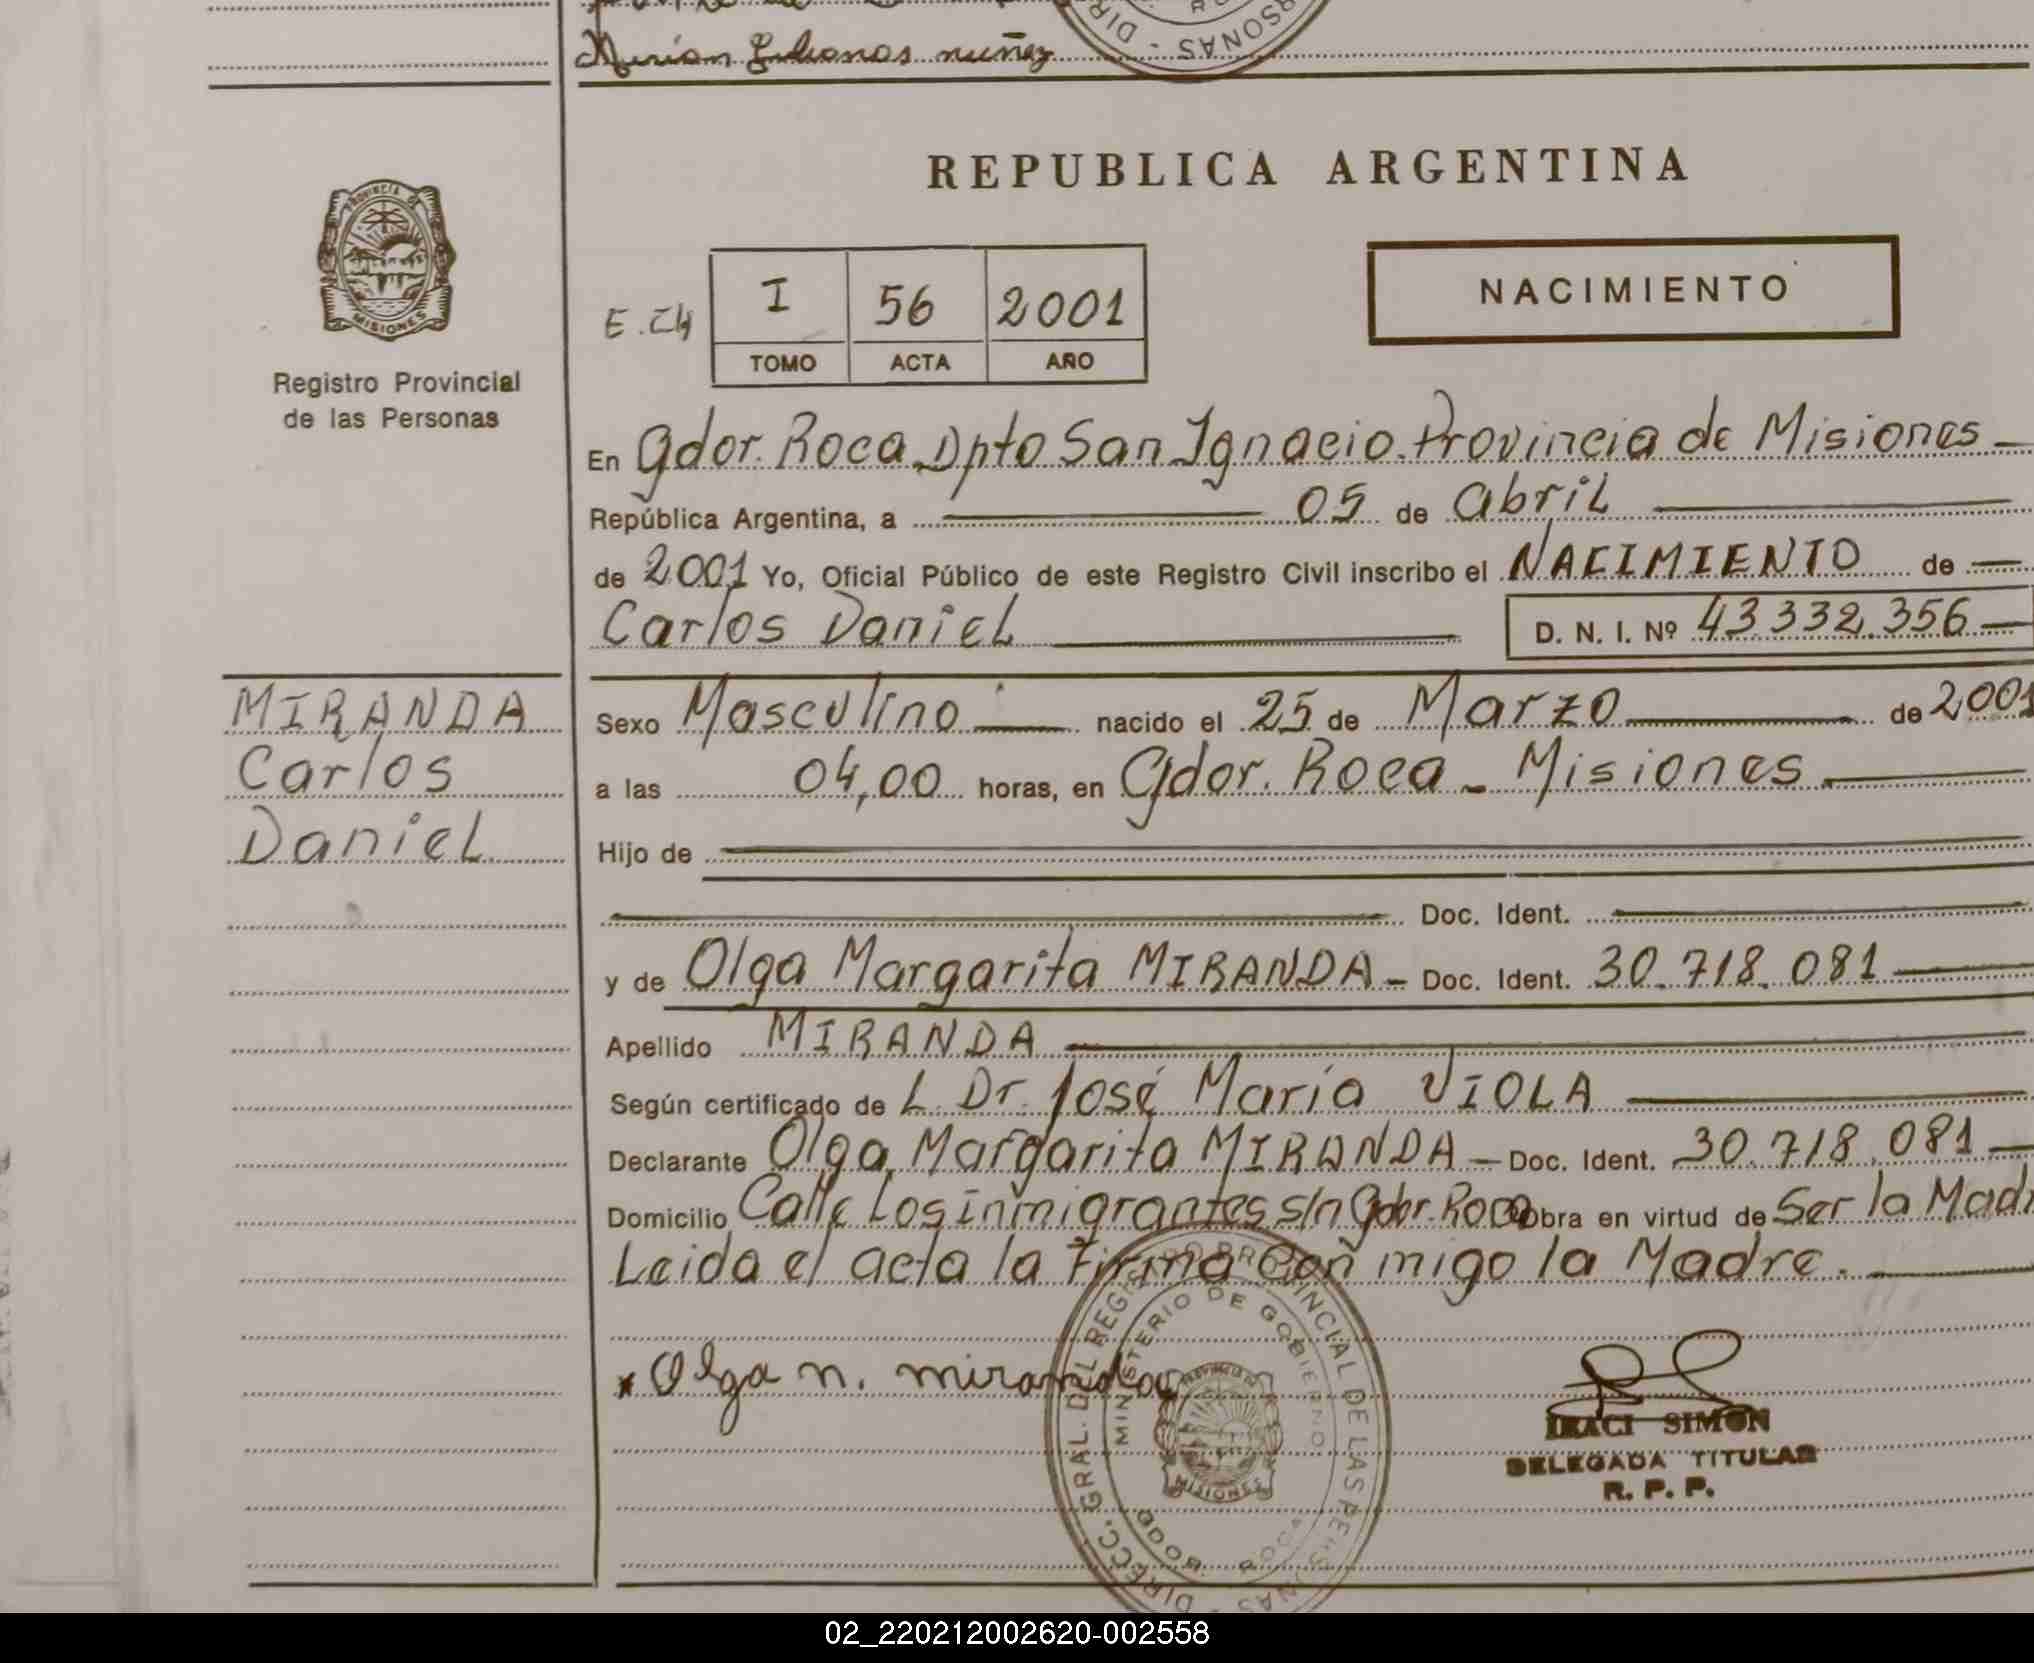 Mirian Julianas nuñez
REPUBLICA ARGENTINA
PROVINCIA DE
MISIONES
Registro Provincial
de las Personas
E.CH
I 56 2001
TOMO ACTA AÑO
NACIMIENTO
En Gdor. Roca Dpto San Ignacio. Provincia de Misiones
República Argentina, a 05 de abril
de 2001 Yo, Oficial Público de este Registro Civil inscribo el NACIMIENTO de
Carlos Daniel D. N. I. Nº 43.332.356
MIRANDA
Carlos
Daniel
Sexo Masculino nacido el 25 de Marzo de 2001
a las 04,00 horas, en Gdor. Roca - Misiones
Hijo de
Doc. Ident.
y de Olga Margarita MIRANDA - Doc. Ident. 30.718.081
Apellido MIRANDA
Según certificado de L. Dr. José María VIOLA
Declarante Olga Margarita MIRANDA - Doc. Ident. 30.718.081
Domicilio Calle Los inmigrantes s/n Gdor. Roca Obra en virtud de Ser la Mad
Leida el acta la Firma Con migo la Madre.
x Olga n. miranda
DIRECC. GRAL. DEL REGISTRO PROVINCIAL DE LAS PERSONAS
MINISTERIO DE GOBIERNO
MISIONES
GDOR. ROCA
IRACI SIMON
DELEGADA TITULAR
R. P. P.
02_220212002620-002558